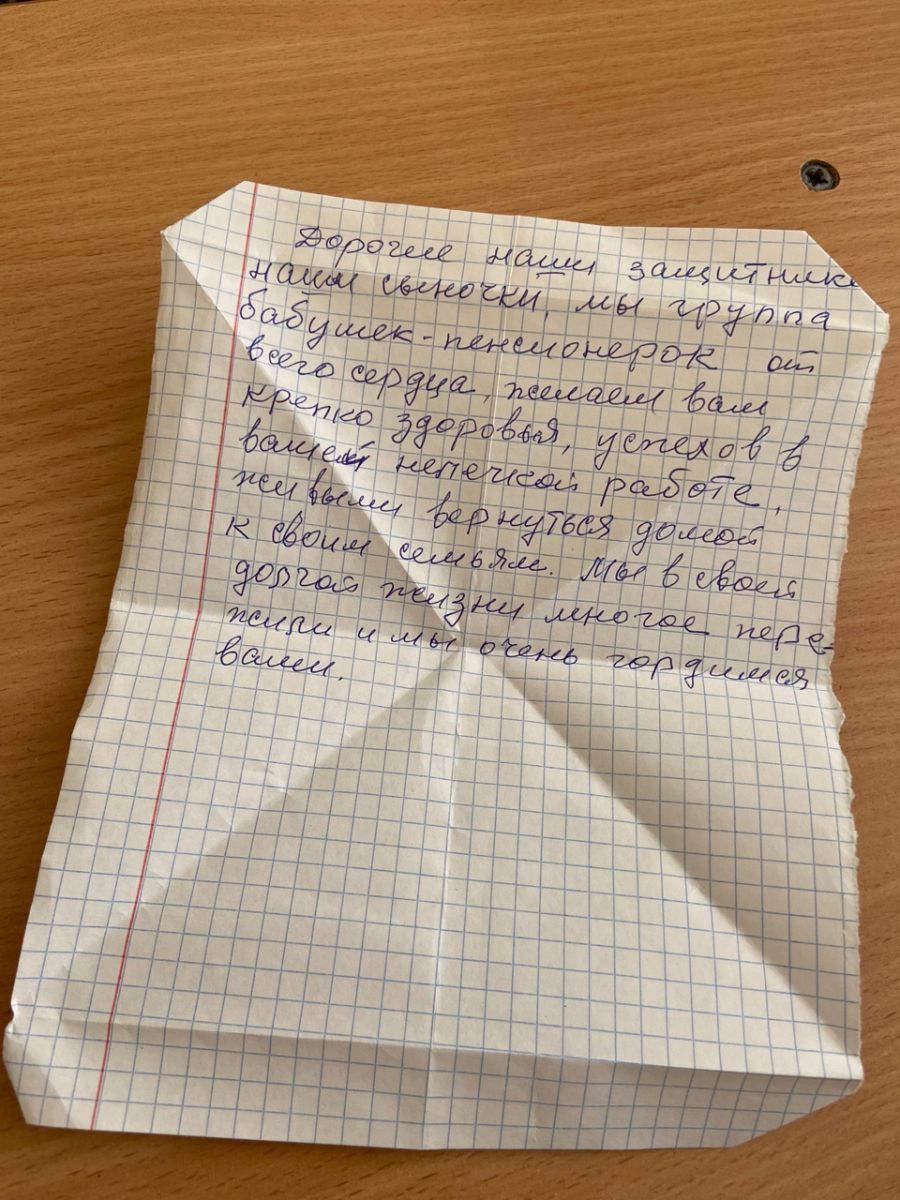 Дорогие наши защитники
наши сыночки, мы группа
бабушек-пенсионерок от
всего сердца, желаем вам
крепко здоровья, успехов в
вашей нелегкой работе,
живыми вернуться домой
к своим семьям. Мы в своей
долгой жизни многое пере-
жили и мы очень гордимся
вами.